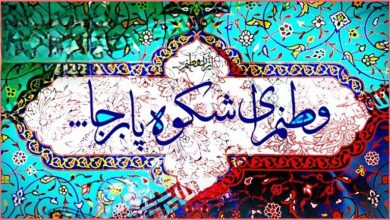 وطنم ای شکوه پابرجا...